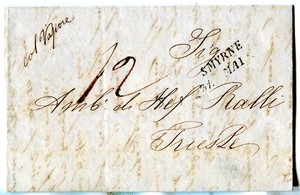 col Vapore
Sig
SMYRNE
31. MAI
12
Amb. di Stef. Ralli
Trieste